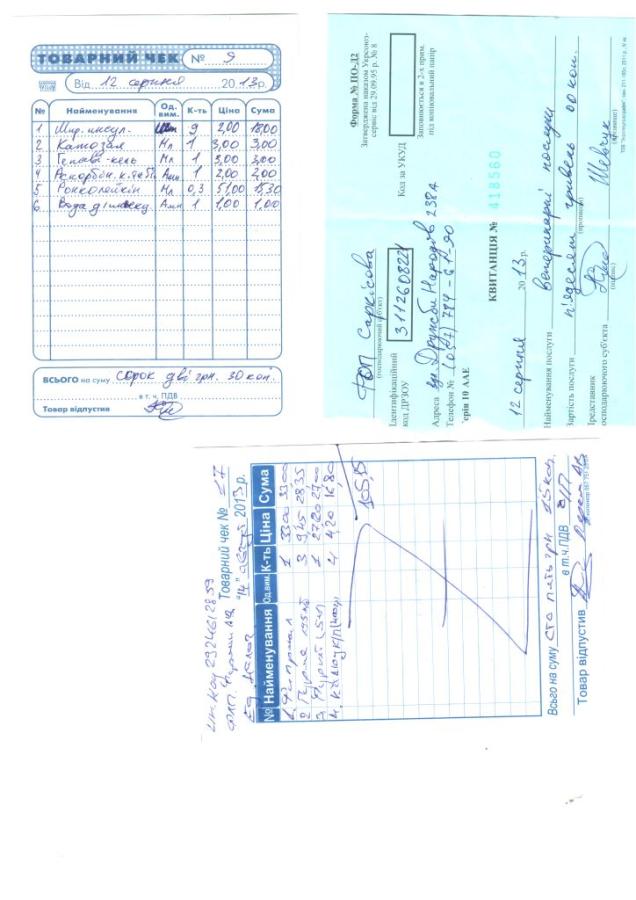 ТОВАРНИЙ ЧЕК № 9
Від 12 серпня 2013 р.
№ Найменування Од. вим. К-ть Ціна Сума
1 Шпр. инсул. шт 9 2,00 18.00
2 Катозал Мл 1 3,00 3,00
3 Мл 1 3,00 3,00
4 Аскорбін. к. Амп 1 2,00 2,00
5 Ронколейкін Мл 0,3 51,00 15,30
6 Вода д/ Амп 1 1,00 1,00
ВСЬОГО на суму сорок дві грн. 30 коп.
в т. ч. ПДВ
Товар відпустив
Форма № ПО-Д2
Затверджена наказом Укрсоюз-
сервіс від 29.09.95 р. № 8
Код за УКУД
Заповнюється в 2-х прим.
під копіювальний папір
ФОП Саркісова
(господарюючий суб'єкт)
Ідентифікаційний
код ДРЗОУ 3112608221
Адреса Дружби Народів 238а
Телефон № (057) 794-61-90
Серія 10 ААЕ КВИТАНЦІЯ № 418560
12 серпня 2013 р.
Найменування послуги ветеринарні послуги
Вартість послуги п'ядесят гривень 00 коп.
(прописом)
Представник
господарюючого суб'єкта Шевчук
(підпис) (прізвище)
код 2924612859
Товарний чек № 27
"14" 2013 р.
№ Найменування Од.вим. К-ть Ціна Сума
1. 1 33.00 33.00
2. 3 9,45 28,35
3. 1 27.00 27,00
4. 4 4,20 16,80
105,15
Всього на суму сто пять грн 15 коп.
в т.ч.ПДВ
Товар відпустив